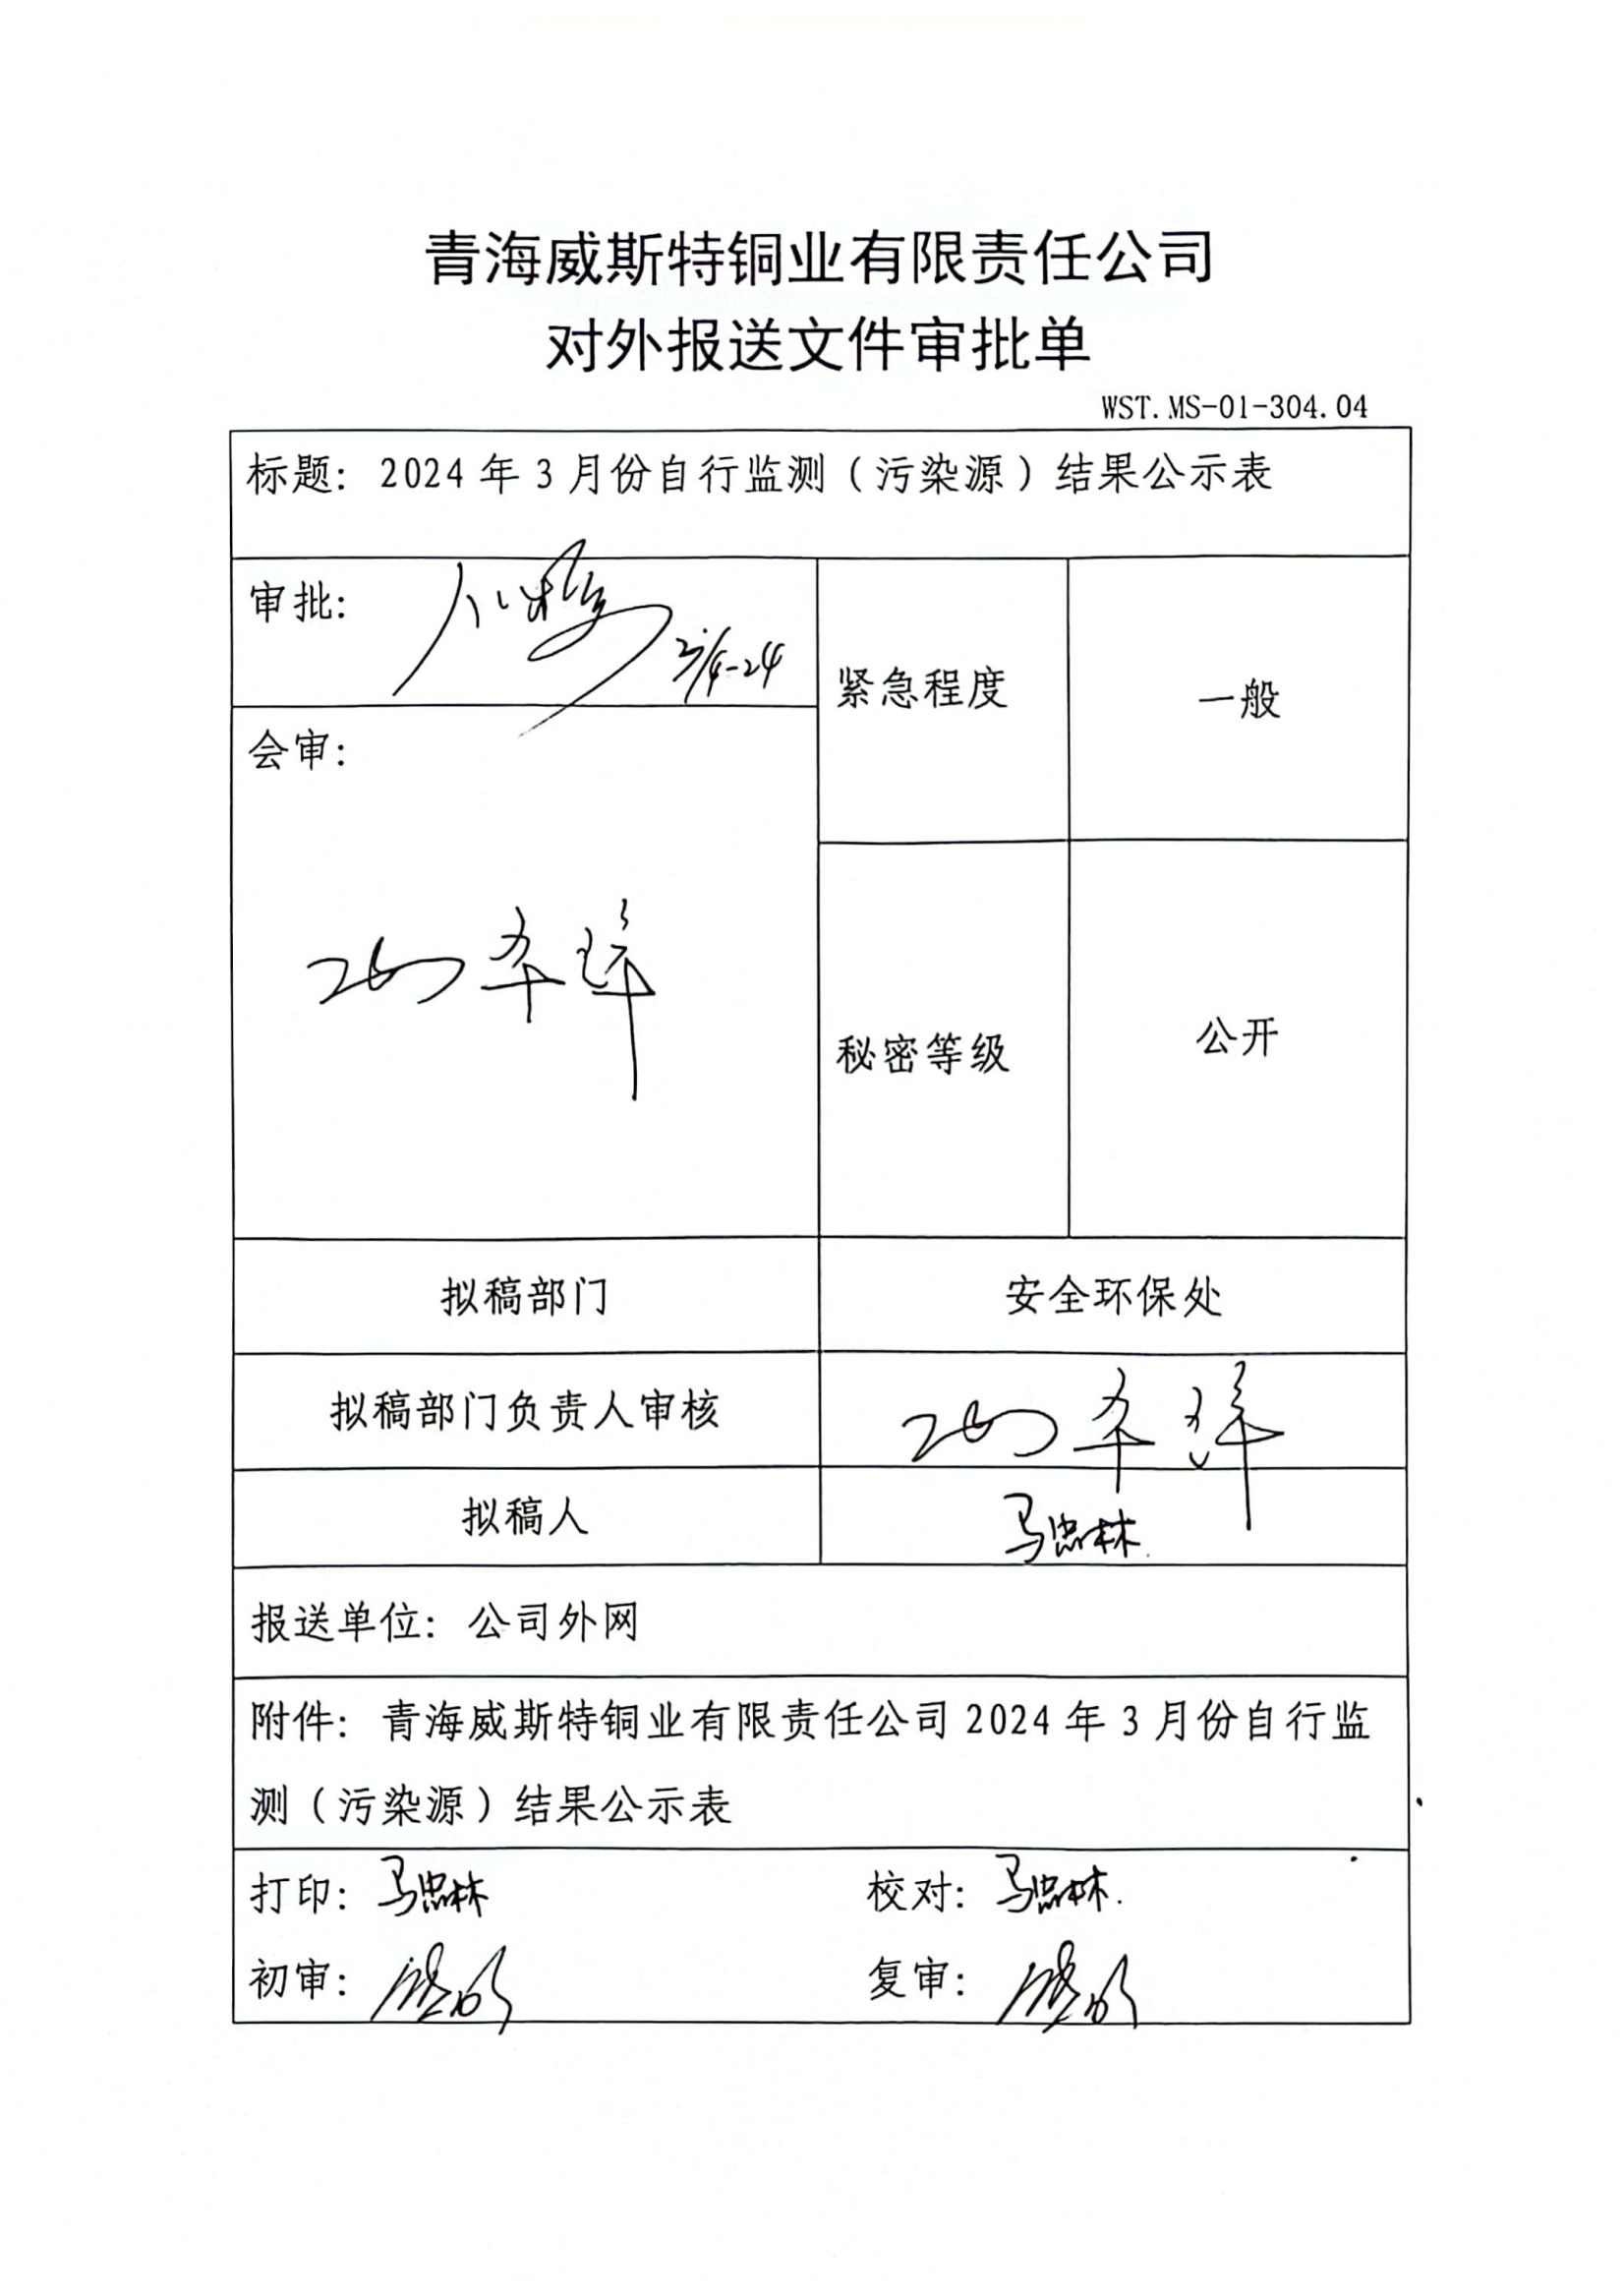 青海威斯特铜业有限责任公司
对外报送文件审批单
WST.MS-01-304.04
标题：2024年3月份自行监测（污染源）结果公示表
审批：
紧急程度
一般
会审：
秘密等级
公开
拟稿部门
安全环保处
拟稿部门负责人审核
拟稿人
马忠林
报送单位：公司外网
附件：青海威斯特铜业有限责任公司2024年3月份自行监
测（污染源）结果公示表
打印：马忠林 校对：马忠林.
初审： 复审：